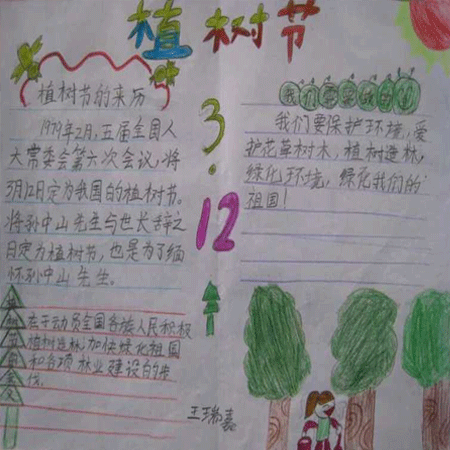 植树节
植树节的来历
1979年2月,五届全国人
大常委会第六次会议,将
3月12日定为我国的植树节。
将孙中山先生与世长辞之
日定为植树节,也是为了缅
怀孙中山先生。
在于动员全国各族人民积极
植树造林,加快绿化祖国
和各项林业建设的步
伐。
3.12
我们要保护环境,爱
护花草树木,植树造林,
绿化环境,绿化我们的
祖国!